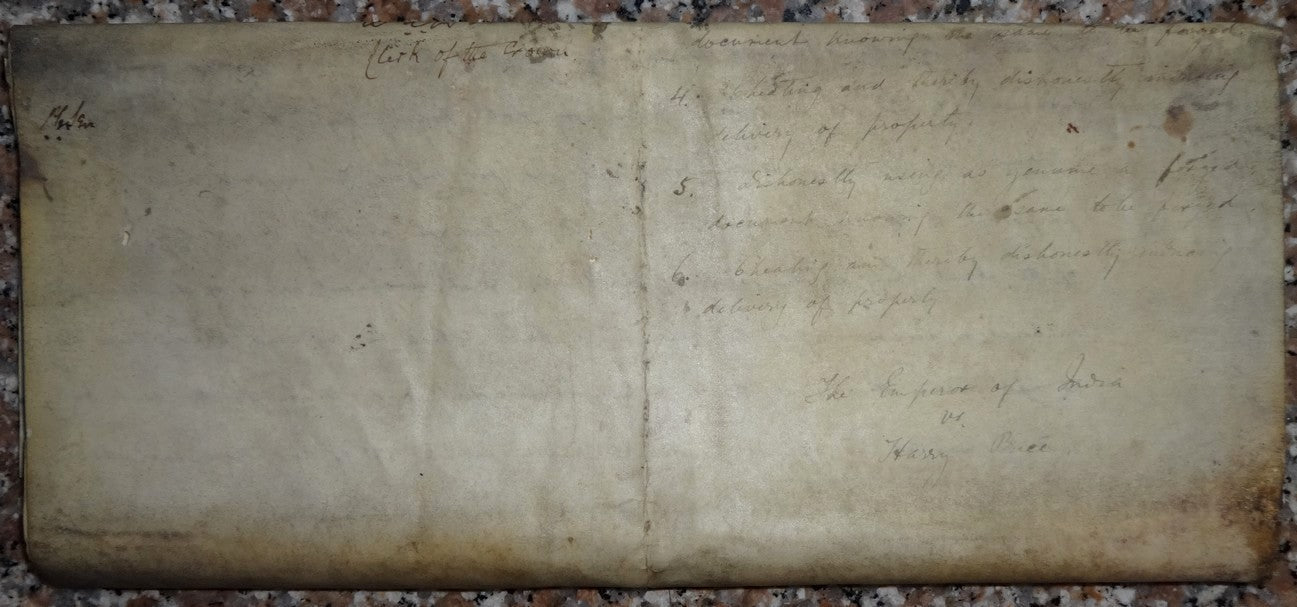 Clerk of the Crown
document knowing the same to be forged.
4. Cheating and thereby dishonestly inducing
delivery of property.
5. Dishonestly using as genuine a forged
document knowing the same to be forged.
6. Cheating and thereby dishonestly inducing
delivery of property
The Emperor of India
vs.
Harry Price